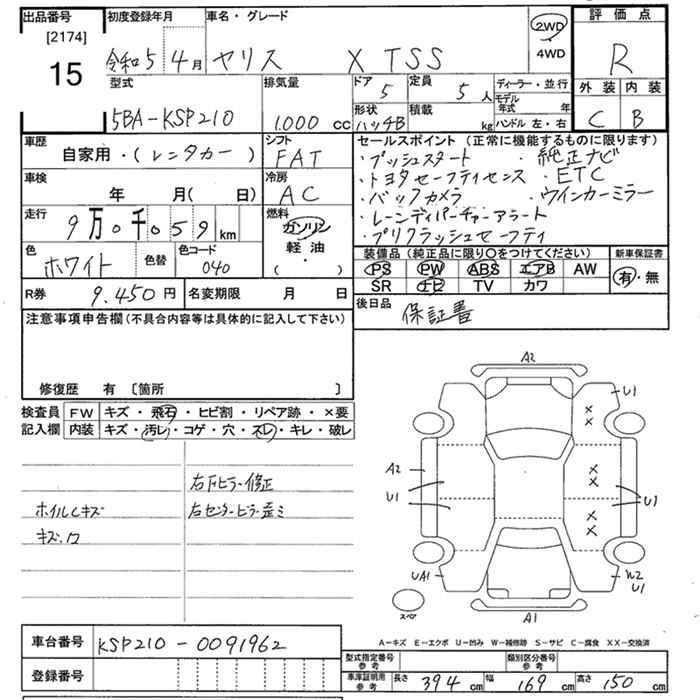 出品番号
[2174]
15
初度登録年月
令和5 4月
車名・グレード
ヤリス X TSS
2WD
4WD
評価点
R
外装 内装
C B
型式
5BA-KSP210
排気量
1.000 cc
ドア
5
定員
5人
形状
ハッチB
積載
kg
ディーラー・並行
モデル年式 年
ハンドル 左・右
車歴
自家用・(レンタカー)
シフト
FAT
車検
年 月( 日)
冷房
AC
走行
9万0千059km
燃料
ガソリン
軽油
・
( )
色
ホワイト
色替
色コード
040
R券 9.450円
名変期限 月 日
セールスポイント (正常に機能するものに限ります)
・プッシュスタート ・純正ナビ
・トヨタセーフティセンス ・ETC
・バックカメラ ・ウインカーミラー
・レーンディパーチャーアラート
・プリクラッシュセーフティ
装備品 (純正品に限り○をつけてください)
PS PW ABS エアB AW
SR ナビ TV カワ
新車保証書
有・無
後日品
保証書
注意事項申告欄(不具合内容等は具体的に記入して下さい)
修復歴 有 〔箇所 〕
検査員記入欄
FW キズ・飛石・ヒビ割・リペア跡・×要
内装 キズ・汚レ・コゲ・穴・スレ・キレ・破レ
右Fピラー修正
ホイルCキズ 右センターピラー歪ミ
A2
U1
×
×
A2
×
×
U1
U1
×
×
UA1
W2
U1
スペア
A1
A-キズ E-エクボ U-凹み W-補修跡 S-サビ C-腐食 XX-交換済
車台番号 KSP210-0091962
登録番号
型式指定番号参考
類別区分番号参考
車庫証明用参考 長さ 394cm 幅 169cm 高さ 150cm